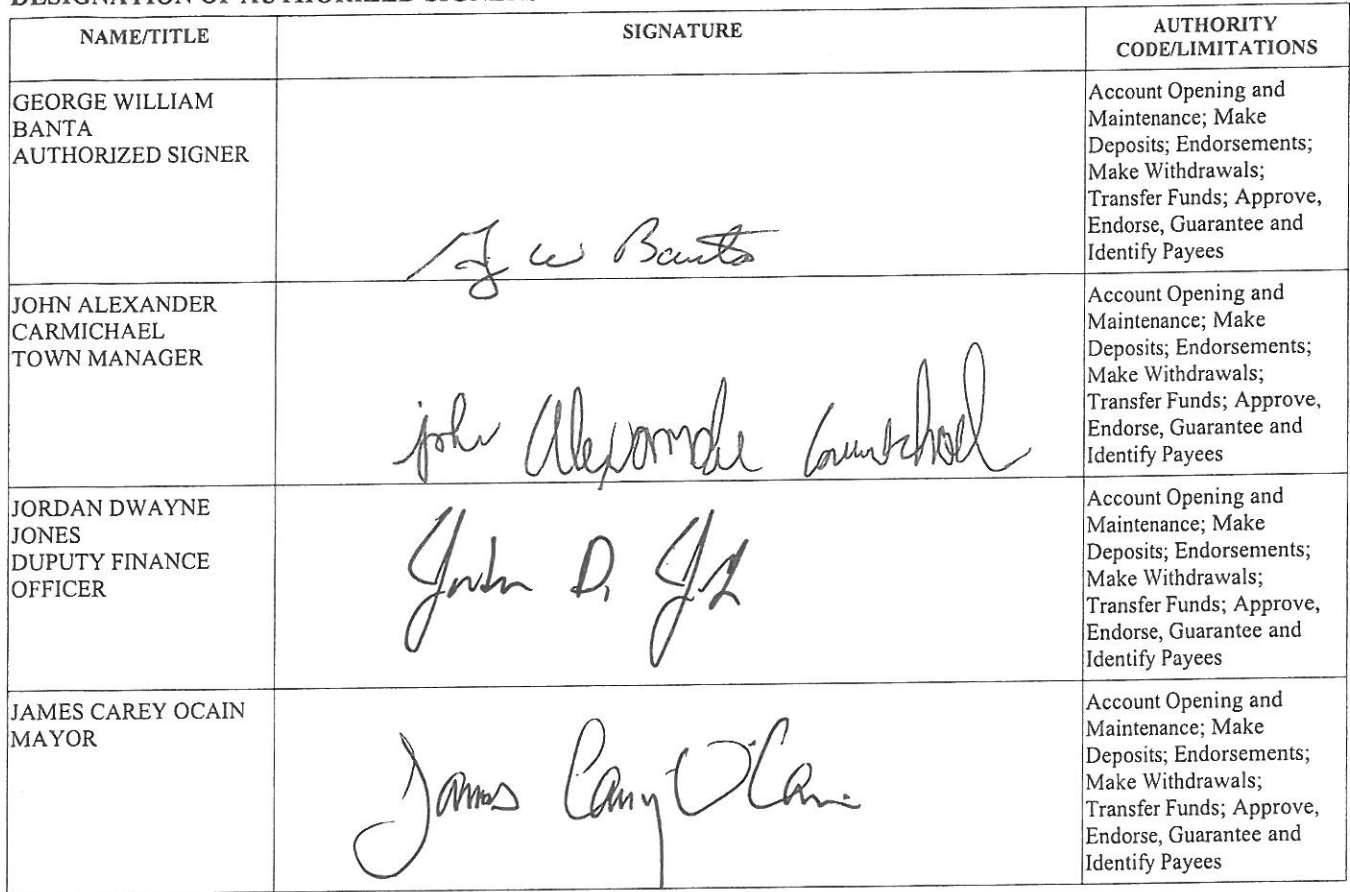 DESIGNATION OF AUTHORIZED SIGNERS
NAME/TITLE
SIGNATURE
AUTHORITY
CODE/LIMITATIONS
GEORGE WILLIAM
BANTA
AUTHORIZED SIGNER
G W Banta
Account Opening and
Maintenance; Make
Deposits; Endorsements;
Make Withdrawals;
Transfer Funds; Approve,
Endorse, Guarantee and
Identify Payees
JOHN ALEXANDER
CARMICHAEL
TOWN MANAGER
john Alexander Carmichael
Account Opening and
Maintenance; Make
Deposits; Endorsements;
Make Withdrawals;
Transfer Funds; Approve,
Endorse, Guarantee and
Identify Payees
JORDAN DWAYNE
JONES
DUPUTY FINANCE
OFFICER
Jordan D.
Account Opening and
Maintenance; Make
Deposits; Endorsements;
Make Withdrawals;
Transfer Funds; Approve,
Endorse, Guarantee and
Identify Payees
JAMES CAREY OCAIN
MAYOR
James Carey O'Cain
Account Opening and
Maintenance; Make
Deposits; Endorsements;
Make Withdrawals;
Transfer Funds; Approve,
Endorse, Guarantee and
Identify Payees